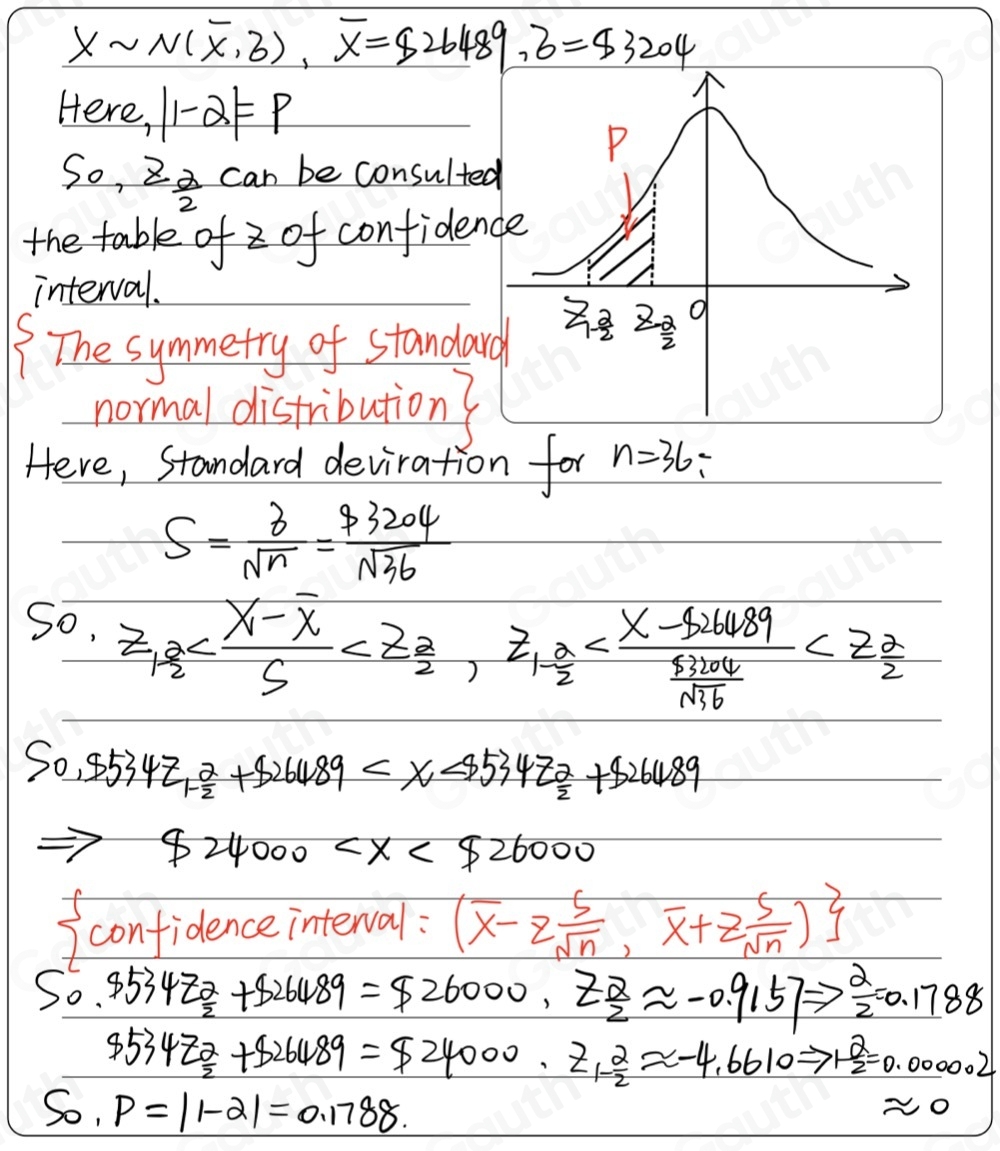 X ~ N(x̄, 6), x̄ = $26489, 6 = $3204
Here, |1-2| = P
So, Z 2/2 can be consulted
the table of z of confidence
interval.
P
Z1-2/2 Z2/2 0
{ The symmetry of standard
normal distribution }
Here, Standard deviration for n=36:
S = 6/√n = $3204/√36
So, Z1-2/2 < (X - x̄)/S < Z2/2 , Z1-2/2 < (X - $26489)/($3204/√36) < Z2/2
So, $534Z1-2/2 + $26489 < X < $534Z2/2 + $26489
⇒ $24000 < X < $26000
{ confidence interval: (x̄ - z s/√n, x̄ + z s/√n) }
So, $534Z2/2 + $26489 = $26000, Z2/2 ≈ -0.9157 ⇒ 2/2 = 0.1788
$534Z2/2 + $26489 = $24000, Z1-2/2 ≈ -4.6610 ⇒ 1-2/2 = 0.000002
≈ 0
So, P = |1-2| = 0.1788.
Gauth